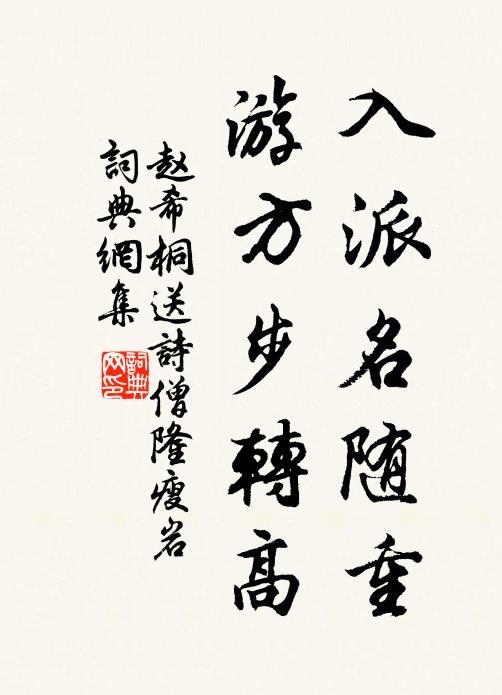 入派名随重
游方步轉高
赵希桐送詩僧隆瘦岩
詞典網集
詞典网印